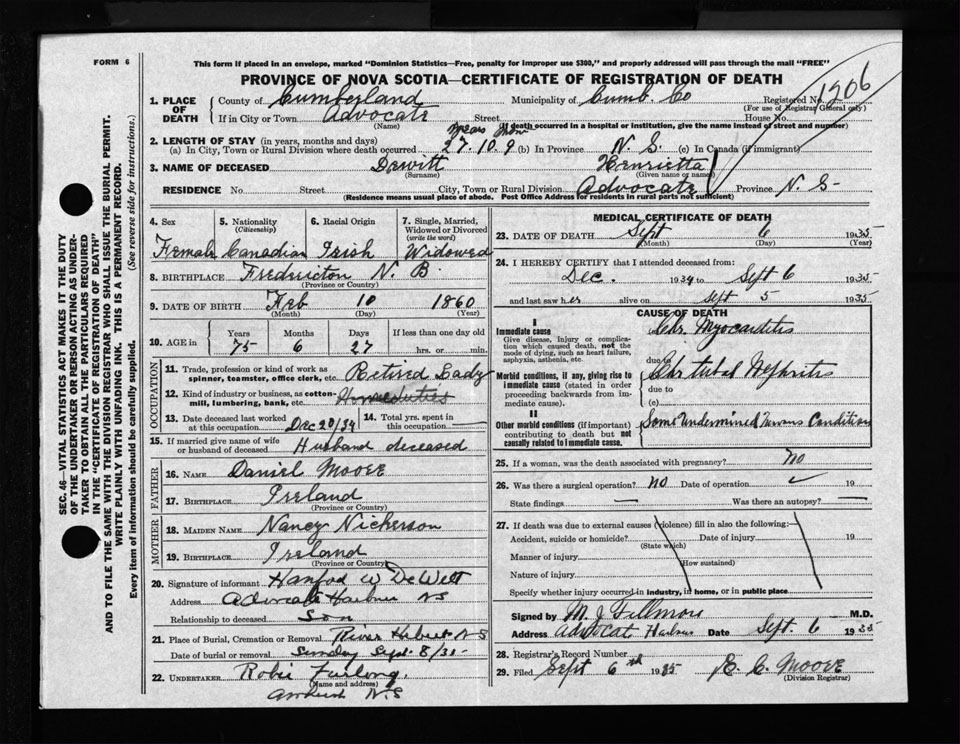 FORM 6
This form if placed in an envelope, marked "Dominion Statistics—Free, penalty for improper use $300," and properly addressed will pass through the mail "FREE"
PROVINCE OF NOVA SCOTIA—CERTIFICATE OF REGISTRATION OF DEATH
1206
1. PLACE OF DEATH County of Cumberland Municipality of Cumb. Co Registered No.
(For use of Registrar General only)
If in City or Town Advocate Street House No.
(Name) If death occurred in a hospital or institution, give the name instead of street and number)
2. LENGTH OF STAY (in years, months and days)
(a) In City, Town or Rural Division where death occurred 27.10.9 (b) In Province N. S. (c) In Canada (if immigrant)
3. NAME OF DECEASED Dewitt Henrietta
(Surname) (Given name or names)
RESIDENCE No. Street City, Town or Rural Division Advocate Province N. S-
(Residence means usual place of abode. Post Office Address for residents in rural parts not sufficient)
4. Sex 5. Nationality (Citizenship) 6. Racial Origin 7. Single, Married, Widowed or Divorced (write the word)
Female Canadian Irish Widowed
8. BIRTHPLACE Fredericton N. B.
(Province or Country)
9. DATE OF BIRTH Feb 10 1860
(Month) (Day) (Year)
10. AGE in Years Months Days If less than one day old
75 6 27 hrs. or min.
OCCUPATION
11. Trade, profession or kind of work as spinner, teamster, office clerk, etc. Retired Lady
12. Kind of industry or business, as cotton-mill, lumbering, bank, etc.
13. Date deceased last worked at this occupation Dec 20/34 14. Total yrs. spent in this occupation
15. If married give name of wife or husband of deceased Husband deceased
FATHER
16. NAME Daniel Moore
17. BIRTHPLACE Ireland
(Province or Country)
MOTHER
18. MAIDEN NAME Nancy Nickerson
19. BIRTHPLACE Ireland
(Province or Country)
20. Signature of informant Hanford W DeWitt
Address Advocate Harbour NS
Relationship to deceased Son
21. Place of Burial, Cremation or Removal River Hebert NS
Date of burial or removal Sunday Sept. 8/35-
22. UNDERTAKER Robie Furlong
(Name and address)
Amherst N.S
MEDICAL CERTIFICATE OF DEATH
23. DATE OF DEATH Sept 6 1935
(Month) (Day) (Year)
24. I HEREBY CERTIFY that I attended deceased from:
Dec. 1934 to Sept 6 1935
and last saw her alive on Sept 5 1935
CAUSE OF DEATH
I
Immediate cause Chr. Myocarditis
Give disease, injury or complication which caused death, not the mode of dying, such as heart failure, asphyxia, asthenia, etc.
due to
Morbid conditions, if any, giving rise to immediate cause (stated in order proceeding backwards from immediate cause). Chr tubal Nephritis
due to
(c)
II
Other morbid conditions (if important) contributing to death but not causally related to immediate cause. Some Undermined Nervous Condition
25. If a woman, was the death associated with pregnancy? No
26. Was there a surgical operation? No Date of operation 19
State findings Was there an autopsy?
27. If death was due to external causes (violence) fill in also the following:
Accident, suicide or homicide? Date of injury 19
(State which)
Manner of injury
(How sustained)
Nature of injury
Specify whether injury occurred in industry, in home, or in public place
Signed by M. J. Fillmore M.D.
Address Advocat Harbour Date Sept 6 1935
28. Registrar's Record Number
29. Filed Sept 6th 1935 E. C. Moore
(Division Registrar)
SEC. 46—VITAL STATISTICS ACT MAKES IT THE DUTY
OF THE UNDERTAKER OR PERSON ACTING AS UNDER-
TAKER TO OBTAIN ALL THE PARTICULARS REQUIRED
IN THE "CERTIFICATE OF REGISTRATION OF DEATH"
AND TO FILE THE SAME WITH THE DIVISION REGISTRAR WHO SHALL ISSUE THE BURIAL PERMIT.
WRITE PLAINLY WITH UNFADING INK. THIS IS A PERMANENT RECORD.
Every item of information should be carefully supplied. (See reverse side for instructions.)